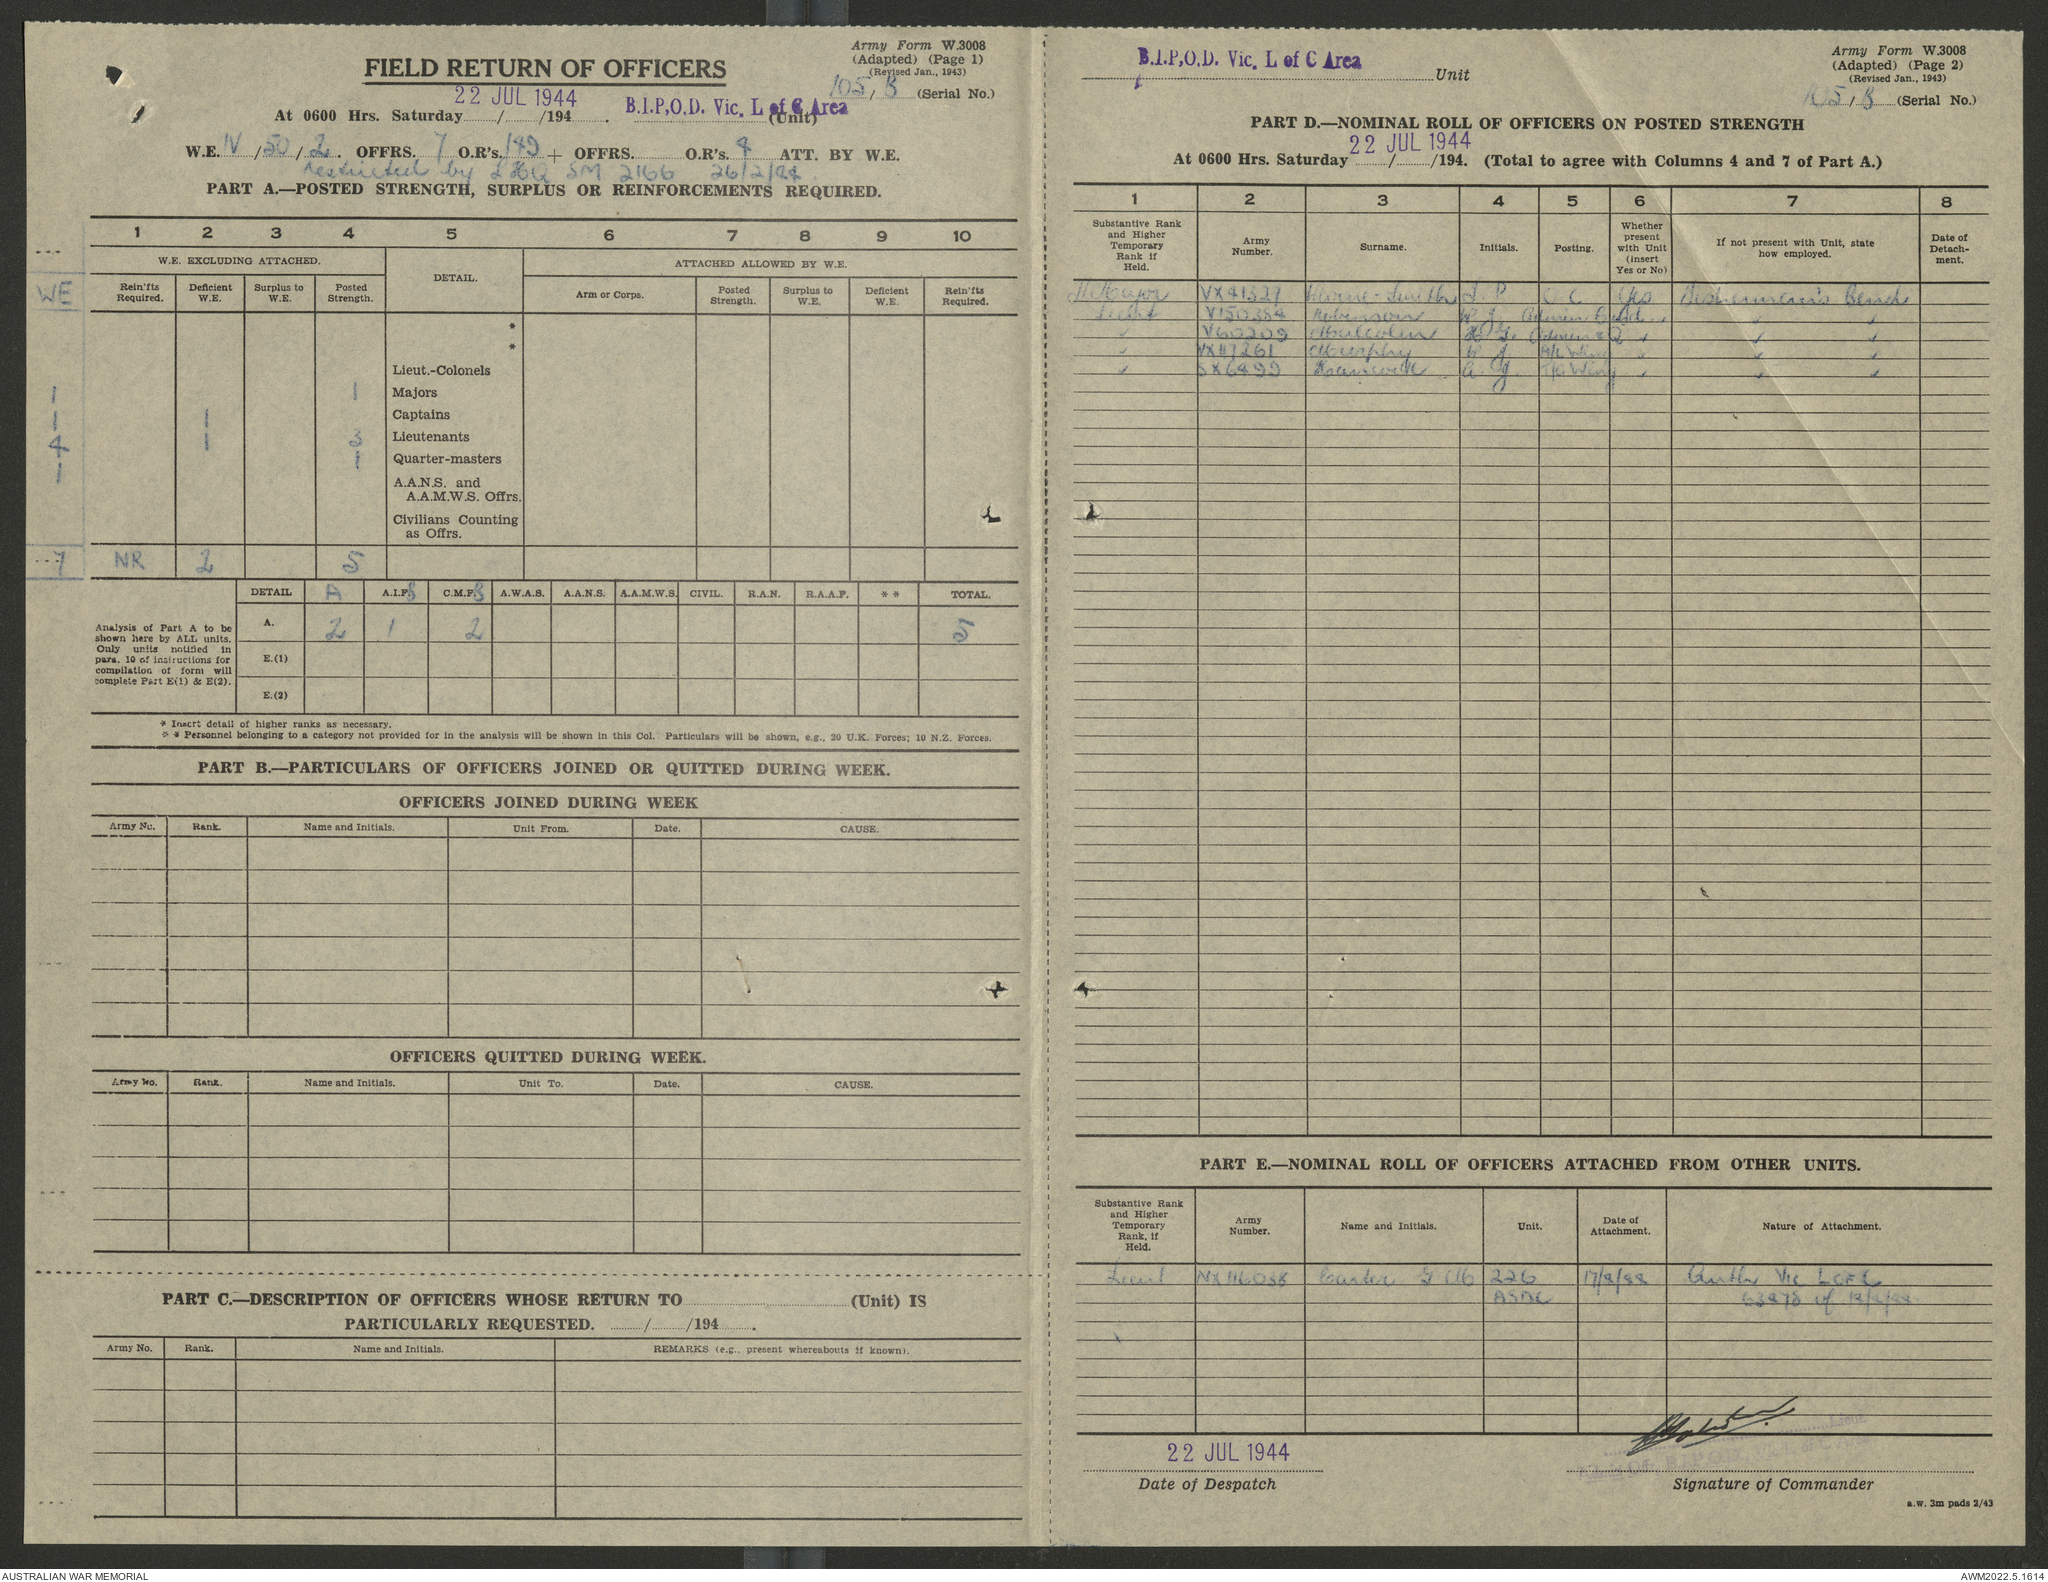 Army Form W.3008
(Adapted) (Page 1)
(Revised Jan., 1943)
FIELD RETURN OF OFFICERS
105/B (Serial No.)
22 JUL 1944
At 0600 Hrs. Saturday / /194 . B.I.P,O.D. Vic. L of C Area (Unit)
W.E. IV / 50 / 2 . OFFRS. 7 O.R's. 149 + OFFRS. O.R's. 4 ATT. BY W.E.
restricted by LHQ SM 2166 26/2/44
PART A.—POSTED STRENGTH, SURPLUS OR REINFORCEMENTS REQUIRED.
1 2 3 4 5 6 7 8 9 10
W.E. EXCLUDING ATTACHED. DETAIL. ATTACHED ALLOWED BY W.E.
WE Rein'fts Required. Deficient W.E. Surplus to W.E. Posted Strength. Arm or Corps. Posted Strength. Surplus to W.E. Deficient W.E. Rein'fts Required.
*
*
Lieut.-Colonels
1 1 Majors
1 1 Captains
4 1 3 Lieutenants
1 1 Quarter-masters
A.A.N.S. and
A.A.M.W.S. Offrs.
Civilians Counting
as Offrs.
7 NR 2 5
DETAIL A A.I.F. B C.M.F. B A.W.A.S. A.A.N.S. A.A.M.W.S. CIVIL. R.A.N. R.A.A.F. * * TOTAL.
Analysis of Part A to be
shown here by ALL units.
Only units notified in
para. 10 of instructions for
compilation of form will
complete Part E(1) & E(2).
A. 2 1 2 5
E.(1)
E.(2)
* Insert detail of higher ranks as necessary.
* * Personnel belonging to a category not provided for in the analysis will be shown in this Col. Particulars will be shown, e.g., 20 U.K. Forces; 10 N.Z. Forces.
PART B.—PARTICULARS OF OFFICERS JOINED OR QUITTED DURING WEEK.
OFFICERS JOINED DURING WEEK
Army No. Rank. Name and Initials. Unit From. Date. CAUSE.
OFFICERS QUITTED DURING WEEK.
Army No. Rank. Name and Initials. Unit To. Date. CAUSE.
PART C.—DESCRIPTION OF OFFICERS WHOSE RETURN TO (Unit) IS
PARTICULARLY REQUESTED. / /194 .
Army No. Rank. Name and Initials. REMARKS (e.g., present whereabouts if known).
B.I.P,O.D. Vic. L of C Area Unit
Army Form W.3008
(Adapted) (Page 2)
(Revised Jan., 1943)
105/B (Serial No.)
PART D.—NOMINAL ROLL OF OFFICERS ON POSTED STRENGTH
22 JUL 1944
At 0600 Hrs. Saturday / /194. (Total to agree with Columns 4 and 7 of Part A.)
1 2 3 4 5 6 7 8
Substantive Rank and Higher Temporary Rank if Held. Army Number. Surname. Initials. Posting. Whether present with Unit (insert Yes or No) If not present with Unit, state how employed. Date of Detach-ment.
Major VX41327 -Smith J. P. O C Yes Fishermen's Bend
Lieut V150384 Robinson
" V60209 Malcolm
" VX117261 Murphy Wing
" SX6499 Hancock A. J. Wing
PART E.—NOMINAL ROLL OF OFFICERS ATTACHED FROM OTHER UNITS.
Substantive Rank and Higher Temporary Rank, if Held. Army Number. Name and Initials. Unit. Date of Attachment. Nature of Attachment.
Lieut NX116038 Carter 226 Auth Vic L of C
of
22 JUL 1944
Date of Despatch
Lieut
B.I.P.O.D. Vic. L. of C Area
Signature of Commander
a.w. 3m pads 2/43
AUSTRALIAN WAR MEMORIAL
AWM2022.5.1614